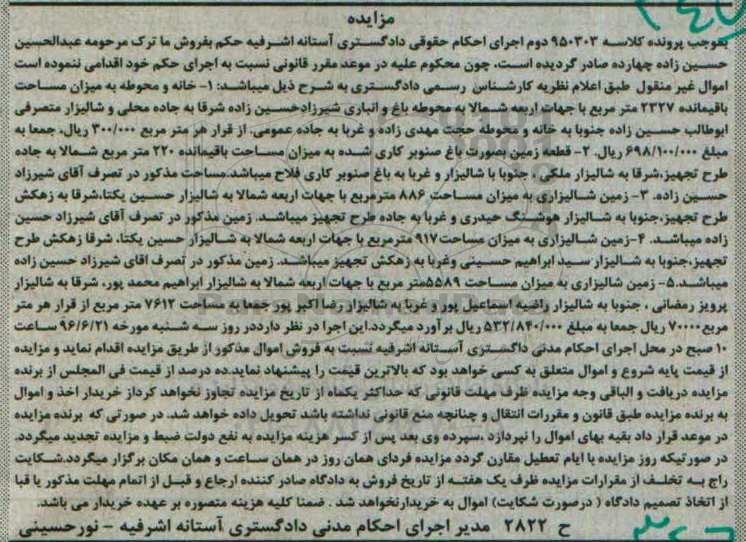 مزایده
بموجب پرونده کلاسه ۹۵۰۳۰۳ دوم اجرای احکام حقوقی دادگستری آستانه اشرفیه حکم بفروش ما ترک مرحومه عبدالحسین
حسین زاده چهارده صادر گردیده است، چون محکوم علیه در موعد مقرر قانونی نسبت به اجرای حکم خود اقدامی ننموده است
اموال غیر منقول طبق اعلام نظریه کارشناس رسمی دادگستری به شرح ذیل میباشد: ۱- خانه و محوطه به میزان مساحت
باقیمانده ۲۳۲۷ متر مربع با جهات اربعه شمالا به محوطه باغ و انباری شیرزادحسین زاده شرقا به جاده محلی و شالیزار متصرفی
ابوطالب حسین زاده جنوبا به خانه و محوطه حجت مهدی زاده و غربا به جاده عمومی. از قرار هر متر مربع ۳۰۰/۰۰۰ ریال، جمعا به
مبلغ ۶۹۸/۱۰۰/۰۰۰ ریال. ۲- قطعه زمین بصورت باغ صنوبر کاری شده به میزان مساحت باقیمانده ۲۲۰ متر مربع شمالا به جاده
طرح تجهیز،شرقا به شالیزار ملکی ، جنوبا با شالیزار و غربا به باغ صنوبر کاری فلاح میباشد.مساحت مذکور در تصرف آقای شیرزاد
حسین زاده. ۳- زمین شالیزاری به میزان مساحت ۸۸۶ مترمربع با جهات اربعه شمالا به شالیزار حسین یکتا،شرقا به زهکش
طرح تجهیز،جنوبا به شالیزار هوشنگ حیدری و غربا به جاده طرح تجهیز میباشد. زمین مذکور در تصرف آقای شیرزاد حسین
زاده میباشد. ۴-زمین شالیزاری به میزان مساحت۹۱۷ مترمربع با جهات اربعه شمالا به شالیزار حسین یکتا، شرقا زهکش طرح
تجهیز،جنوبا به شالیزار سید ابراهیم حسینی وغربا به زهکش تجهیز میباشد. زمین مذکور در تصرف اقای شیرزاد حسین زاده
میباشد.۵- زمین شالیزاری به میزان مساحت ۵۵۸۹متر مربع با جهات اربعه شمالا به شالیزار ابراهیم محمد پور، شرقا به شالیزار
پرویز رمضانی ، جنوبا به شالیزار راضیه اسماعیل پور و غربا به شالیزار رضا اکبر پور جمعا به مساحت ۷۶۱۲ متر مربع از قرار هر متر
مربع ۷۰۰۰۰ ریال جمعا به مبلغ ۵۳۲/۸۴۰/۰۰۰ ریال برآورد میگردد.این اجرا در نظر دارددر روز سه شنبه مورخه ۹۶/۶/۲۱ ساعت
۱۰ صبح در محل اجرای احکام مدنی داگستری آستانه اشرفیه نسبت به فروش اموال مذکور از طریق مزایده اقدام نماید و مزایده
از قیمت پایه شروع و اموال متعلق به کسی خواهد بود که بالاترین قیمت را پیشنهاد نماید.ده درصد از قیمت فی المجلس از برنده
مزایده دریافت و الباقی وجه مزایده ظرف مهلت قانونی که حداکثر یکماه از تاریخ مزایده تجاوز نخواهد کرداز خریدار اخذ و اموال
به برنده مزایده طبق قانون و مقررات انتقال و چنانچه منع قانونی نداشته باشد تحویل داده خواهد شد. در صورتی که برنده مزایده
در موعد قرار داد بقیه بهای اموال را نپردازد ،سپرده وی بعد پس از کسر هزینه مزایده به نفع دولت ضبط و مزایده تجدید میگردد.
در صورتیکه روز مزایده با ایام تعطیل مقارن گردد مزایده فردای همان روز در همان ساعت و همان مکان برگزار میگردد.شکایت
راج به تخلف از مقرارات مزایده ظرف یک هفته از تاریخ فروش به دادگاه صادر کننده ارجاع و قبل از اتمام مهلت مذکور یا قبا
از اتخاذ تصمیم دادگاه ( درصورت شکایت) اموال به خریدارنخواهد شد . ضمنا کلیه هزینه متصوره بر عهده خریدار می باشد.
ح ۲۸۲۲ مدیر اجرای احکام مدنی دادگستری آستانه اشرفیه - نورحسینی